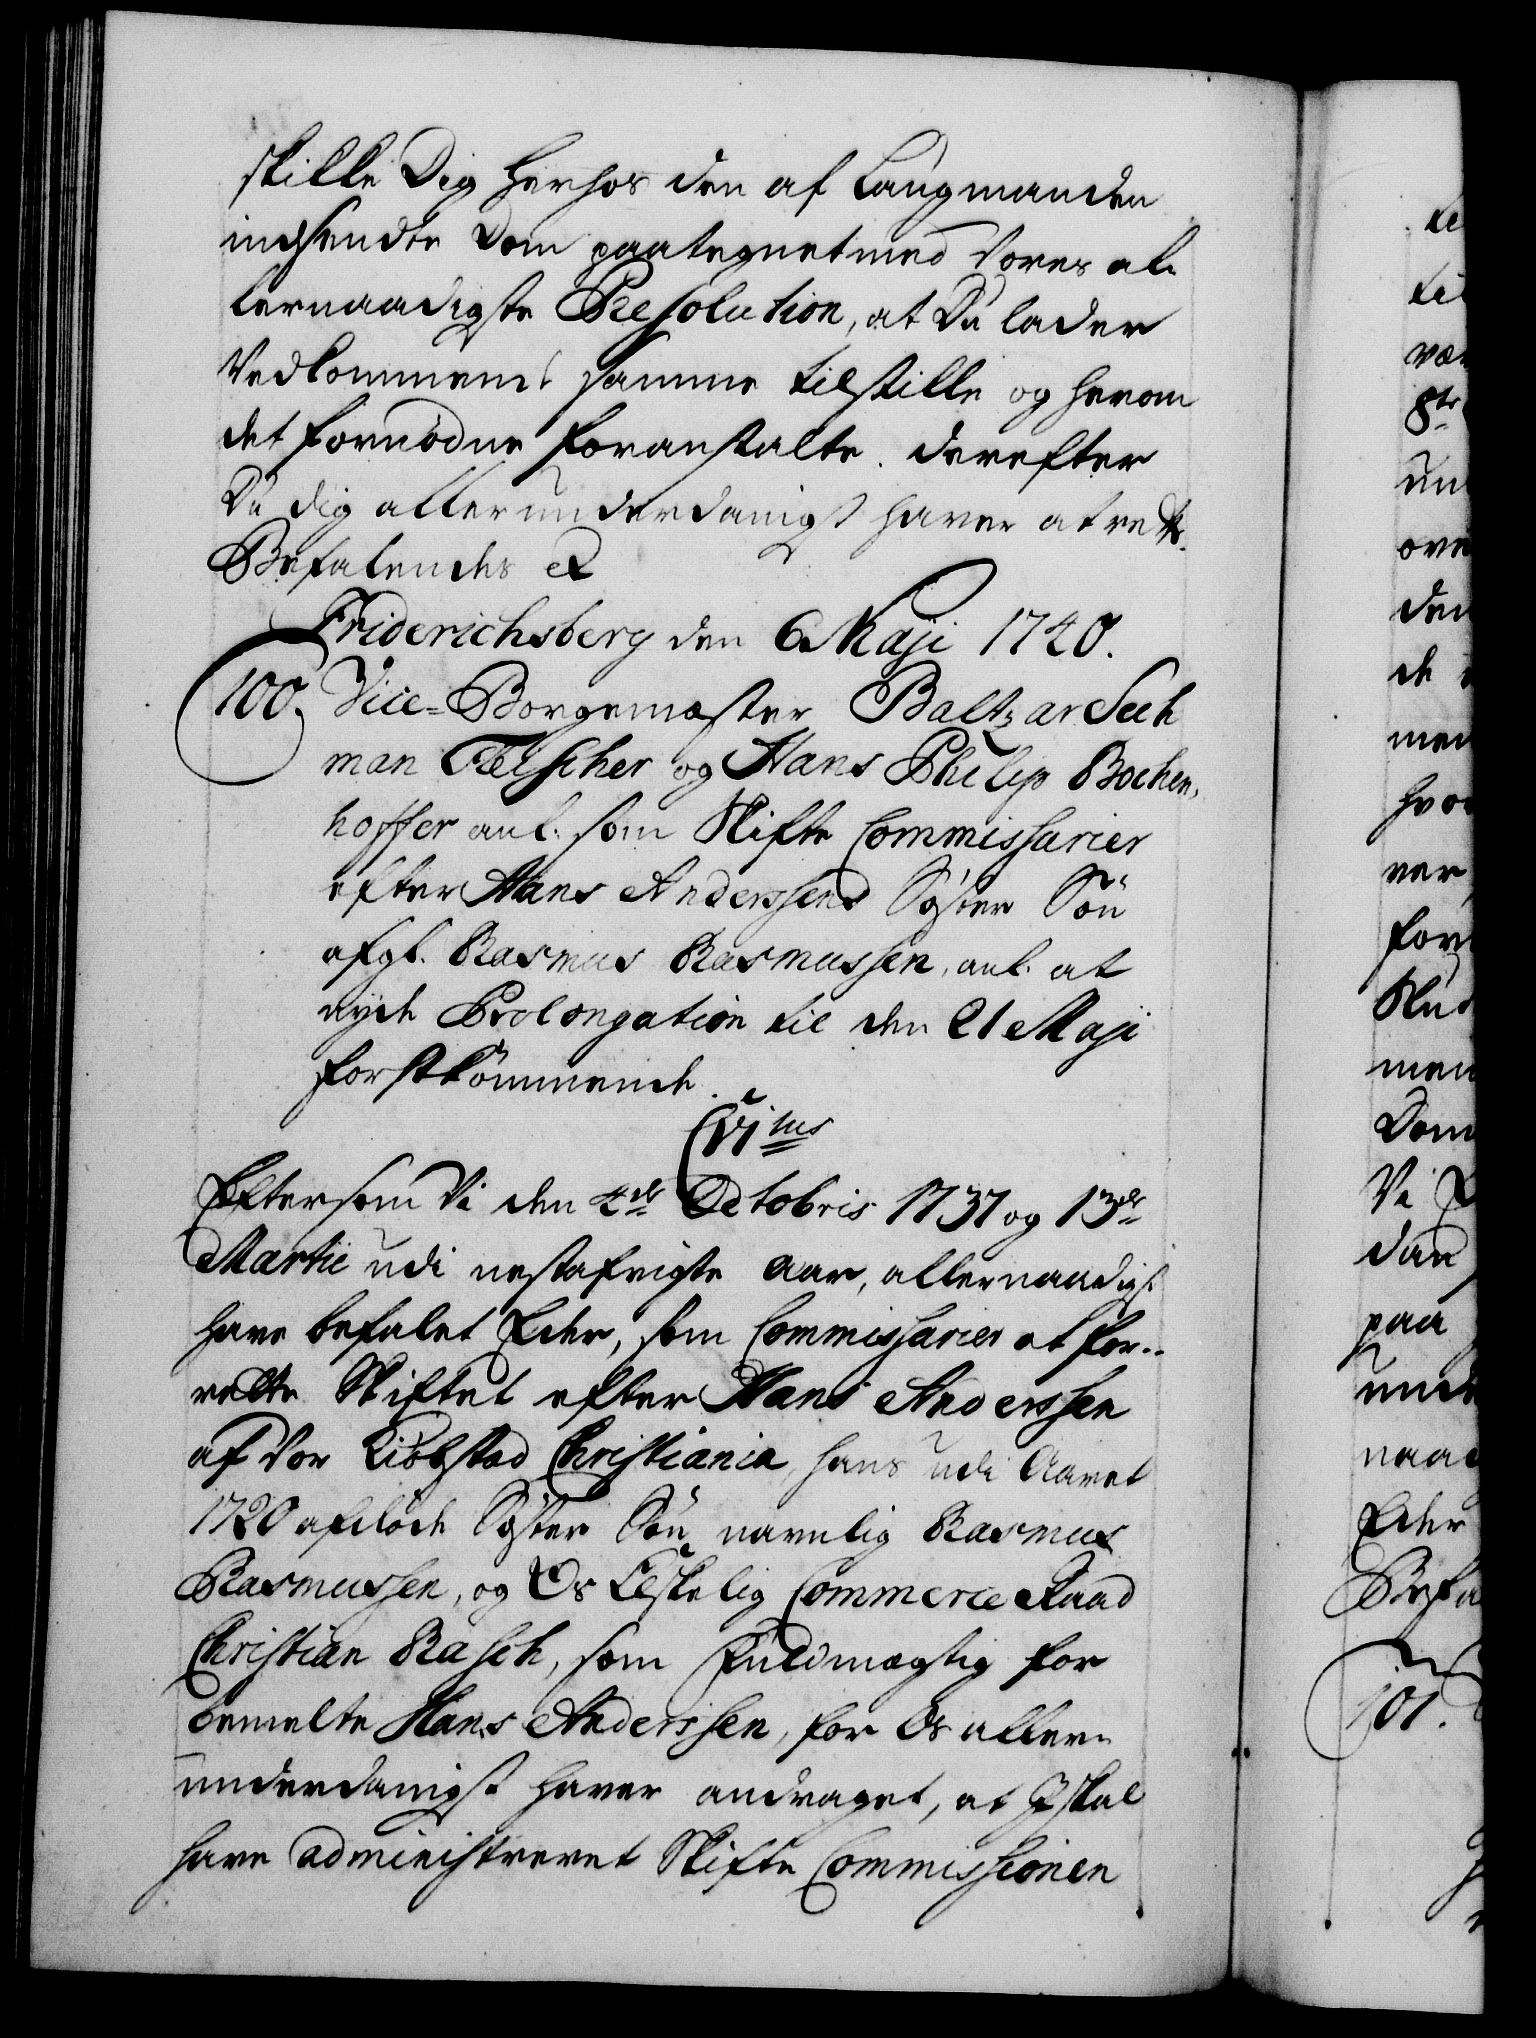 stille Dig herhos den af Laugmanden
indsendte Dom paategnet med Vores al-
lernaadigste Resolution, at Du lader
Vedkommende samme tilstille og herom
det fornødne foranstalte. derefter
Du dig allerunderdanigst haver at rette.
Befalendes &
Friderichsberg den 6 Maji 1740.
100. Vice-Borgemæster Baltzar Sech
man Fleischer og Hans Philip Bochen-
hoffer anl. som Skifte Commissarier
efter Hans Anderssens Søster Søn
afgl. Rasmus Rasmussen, anl. at
nyde Prolongation til den 21 Maji
førstkommende.
C VI tus
Eftersom Vi den 4de Octobris 1737 og 13de
Martii udi nestafvigte Aar, allernaadigst
have befalet Eder, som Commissarier at for-
rette Skiftet efter Hans Anderssen
af Vor Kiøbstad Christiania, hans udi Aaret
1720 afdøde Søster Søn navnlig Rasmus
Rasmussen, og Os Elskelig Commerce Raad
Christian Rasch, som Fuldmægtig for
bemelte Hans Anderssen, for Os aller-
underdanigst haver andraget, at I skal
have administreret Skifte Commissionen